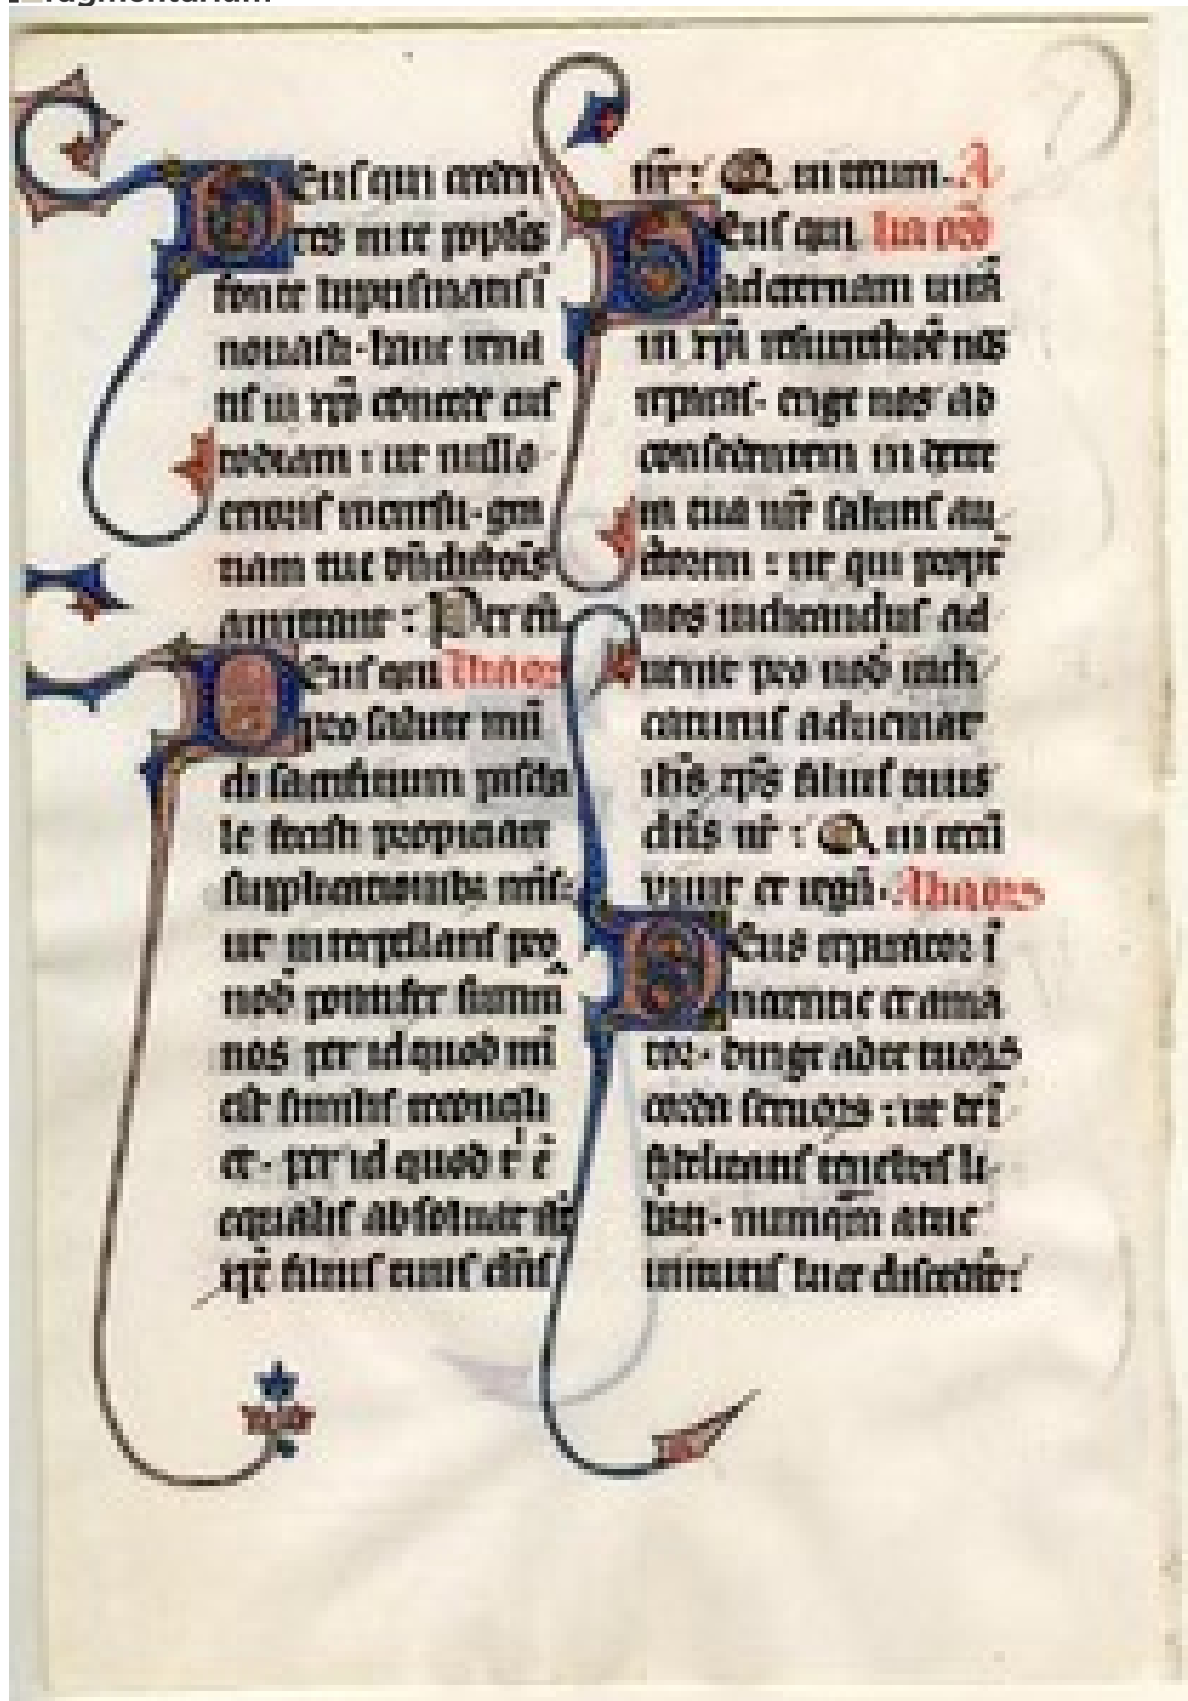 Deus qui creden
tes in te poplos
nouasti. hanc rena
tis in xpo concede cus
todiam : ut nullo
erroris incursu. gra
tiam tue
amittant :
Deus qui
pro salute mū
di sacrificium pascha
le fecisti propiciare
supplicationibus nr̄is:
ut interpellans pro
nob̄ pontifex summ
nos per id quod nr̄i
est similis reconcili
et. per id quod t' ē
equalis absoluat
xp̄c filius tuus dn̄s
nr̄ :
Deus qui
ad eternam uitā
in xp̄i nos
reparas. erige nos ad
consedentem in dexte
ra tua nr̄e salutis au
ctorem : ut qui propt̄
nos iudicandus ad
uenit pro nob̄ iudi
caturus adueniat
ih̄s xp̄s filius tuus
dn̄s nr̄ :
uiuit et regn̄.
Deus reparator ī
nocencie et ama
tor. dirige ad te tuoꝝ
corda seruoꝝ : ut de ī
fidelitatis tenebris li
berati. numq̄m a tue
luce discedāt: